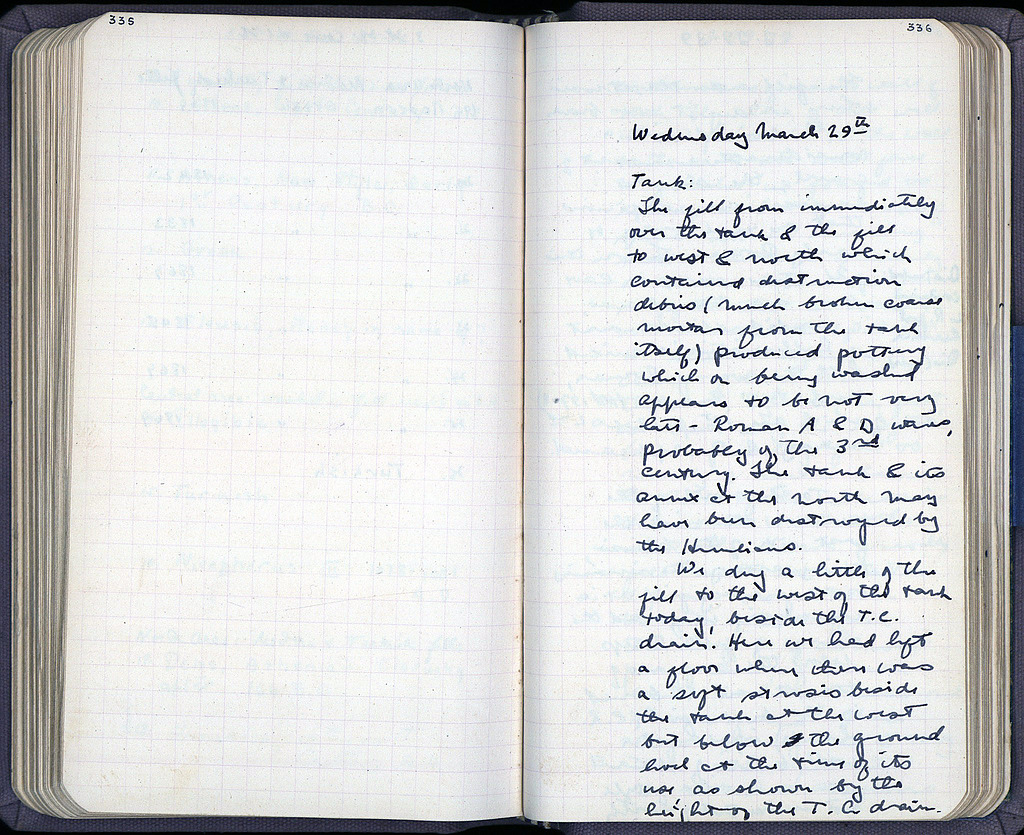 335
336
Wednesday March 29th
Tank:
The fill from immediately
over the tank & the fill
to west & north which
contained destruction
debris (much broken coarse
mortar from the tank
itself) produced pottery
which on being washed
appears to be not very
late - Roman A & D wares,
probably of the 3rd
century. The tank & its
annex at the north may
have been destroyed by
the Herulians.
We dug a little of the
fill to the west of the tank
today, beside the T.C.
drain. Here we had left
a floor when there was
a soft strosis beside
the tank at the west
but below the ground
level at the time of its
use as shown by the
height of the T.C. drain.